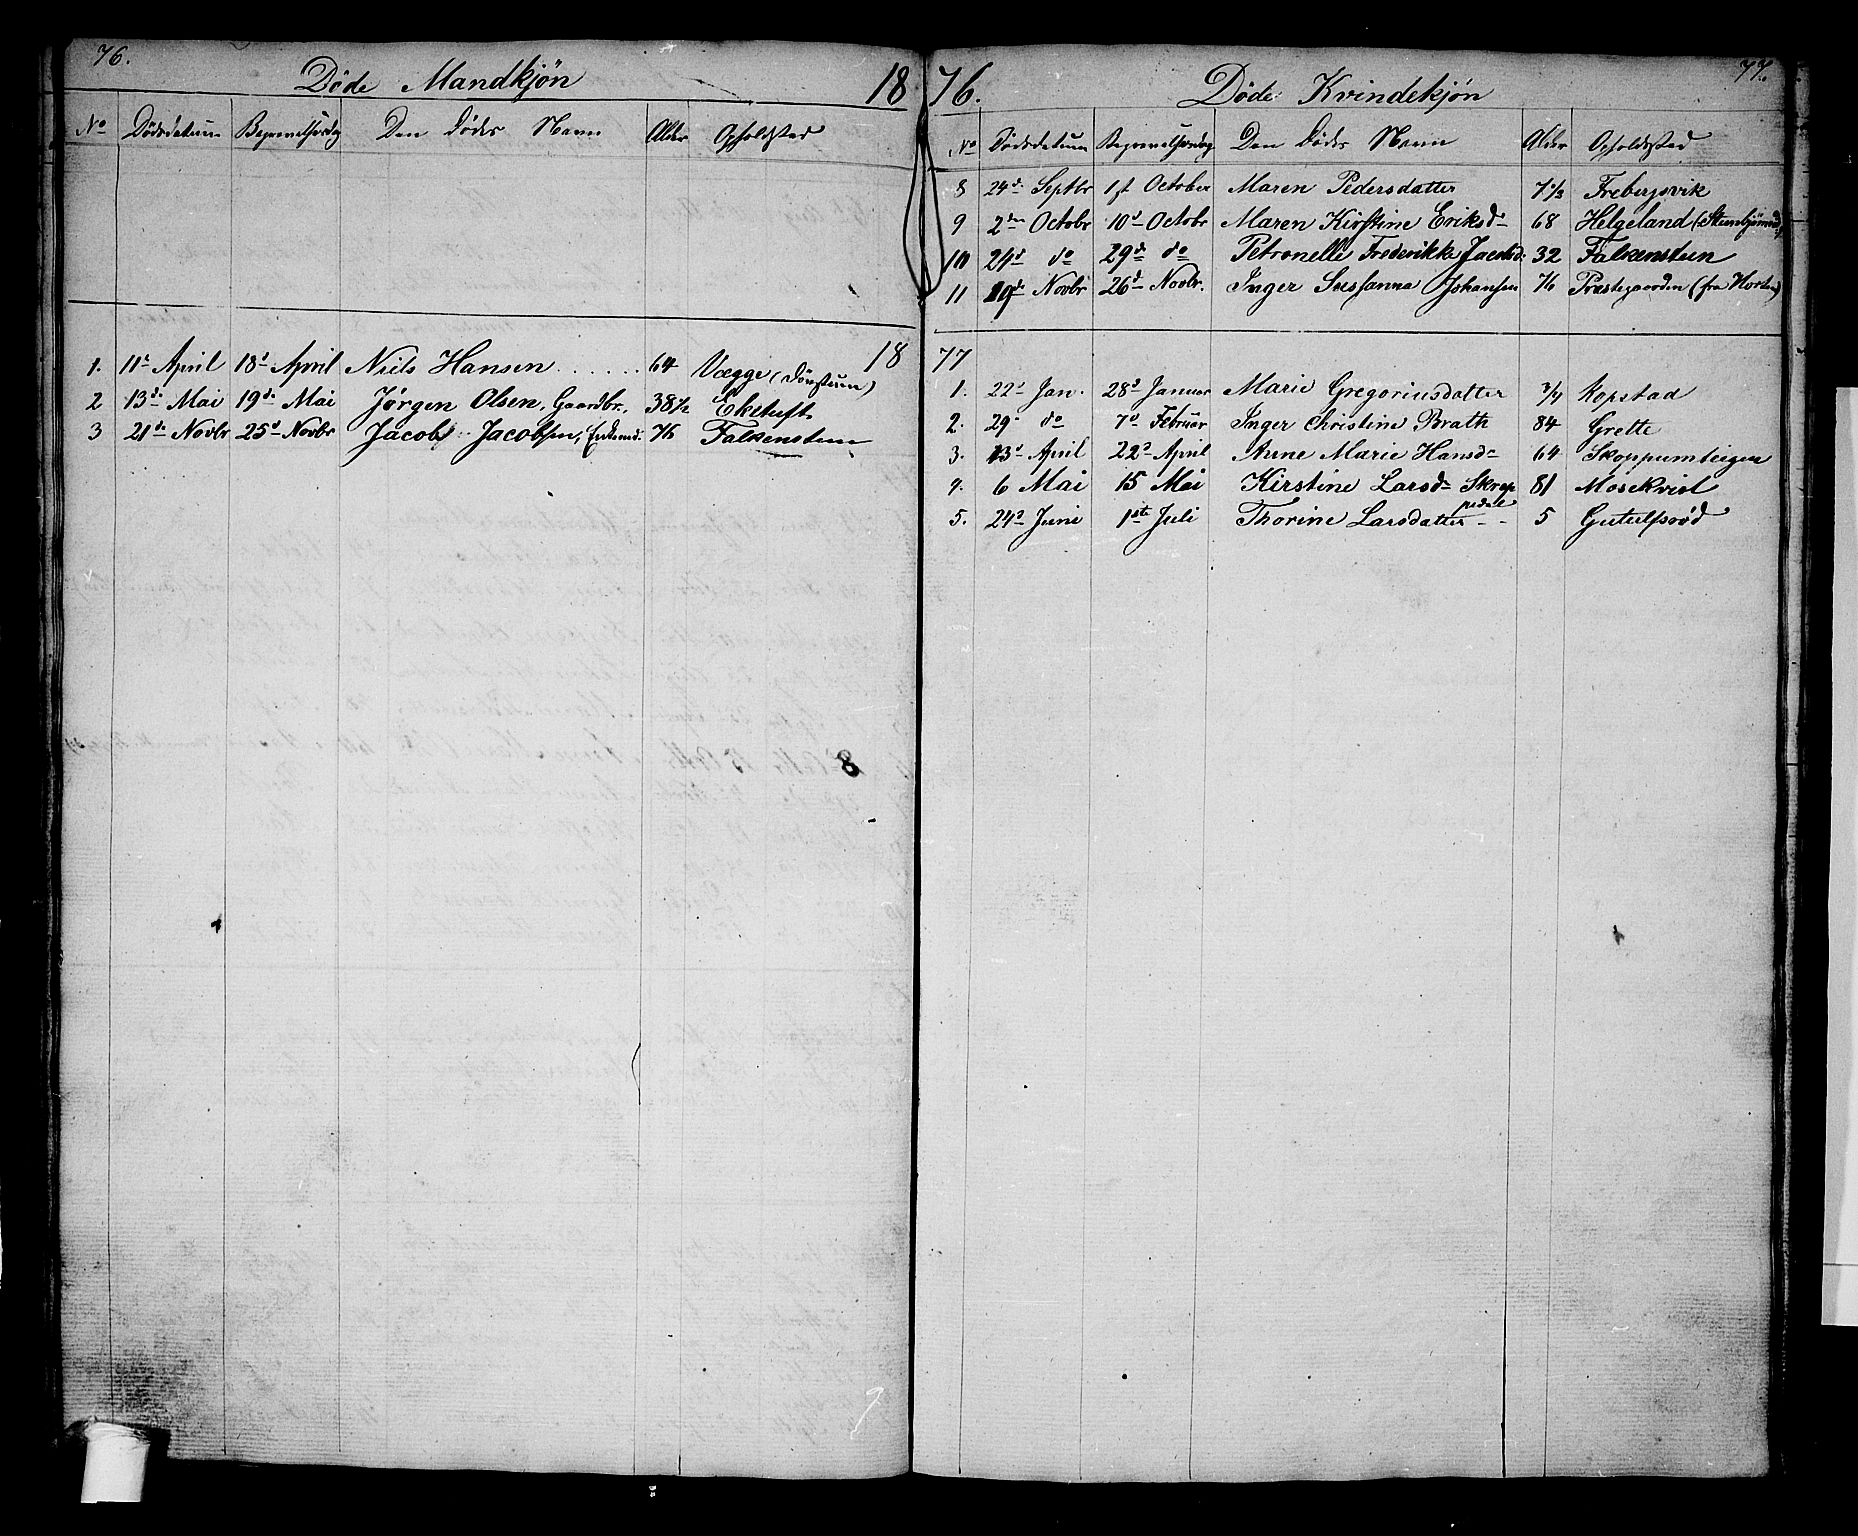 76.
Døde Mandkjøn 18
No Dødsdatum Begravelsesdag Den Dødes Navn Alder Opholdsted
18
1. 11te April 18d April Niels Hansen 64 Vægge (Dunsteun)
2 13de Mai 19de Mai Jørgen Olsen, Gaardbr. 38 1/2 Eketuft
3 21de Novbr 25d Novbr Jacob Jacobsen, Enkemd. 76 Falkensteen
77.
76. Døde Kvindekjøn
No Dødsdatum Begravelsesdag Den Dødes Navn Alder Opholdsted
8 24de Septbr 1st October Maren Pedersdatter 7 1/3 Frebergsvik
9 2den Octobr 10d Octobr Maren Kirstine Eriksd 68 Helgeland
10 24d do 29de do Petronelle Frederikke Jacobsd. 32 Falkensteen
11 19de Novbr 26d Novbr. Inger Sussanna Johansen 76 Præstegaarden (fra Horten)
77
1. 22d Jan. 28d Januar Marie Gregoriusdatter 3/4 Kopstad
2. 29 do 7d Februar Inger Christine Brath 84 Grette
3. 13d April 22d April Anne Marie Hansd 64 Skoppumteigen
4. 6 Mai 15 Mai Kirstine Larsd Skrep
pedale 81 Mosekvist
5. 24d Juni 1ste Juli Thorine Larsdatter - - 5 Gutulfsrød
8